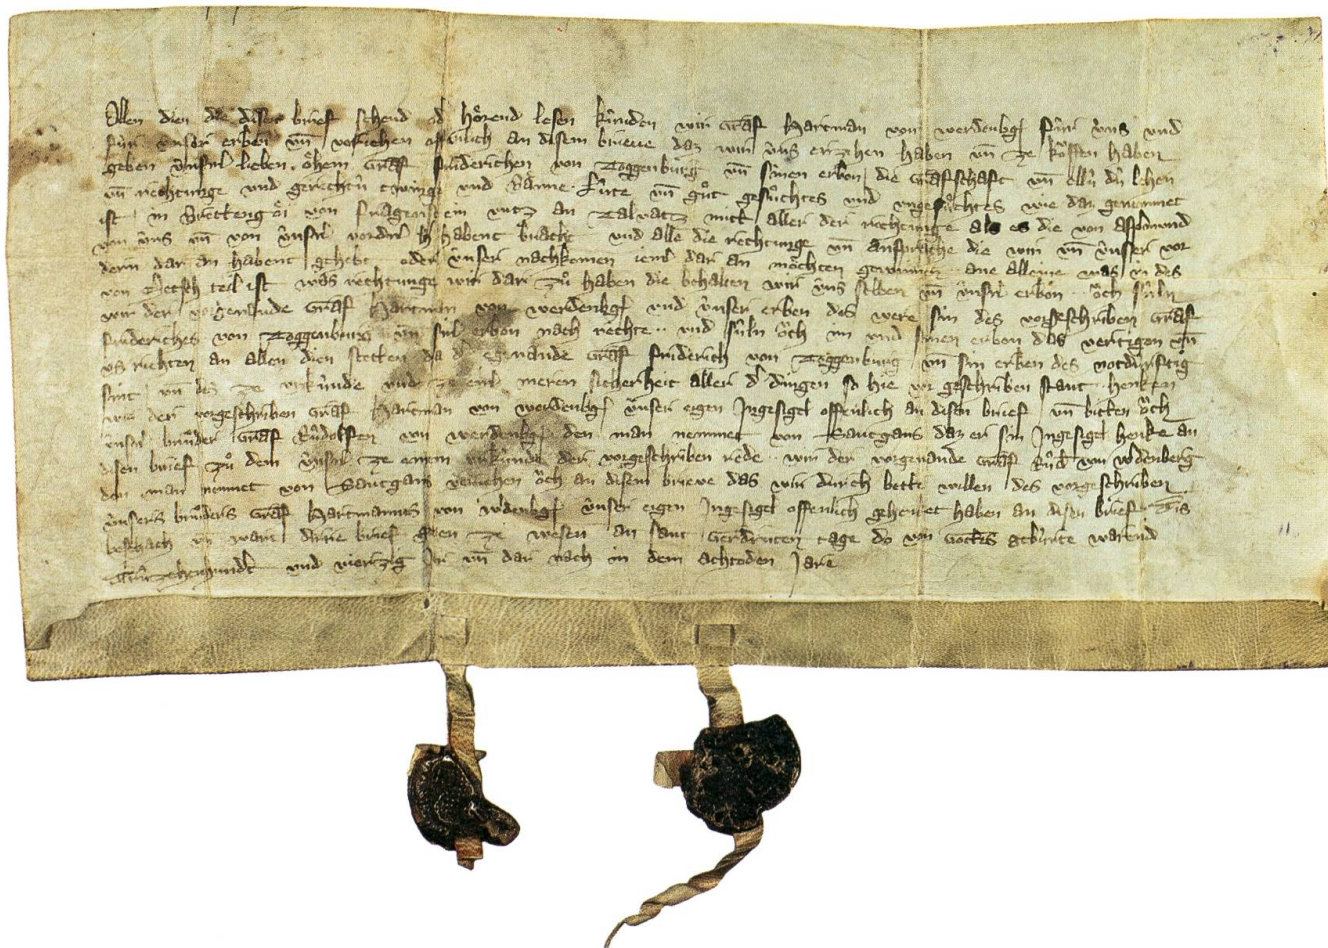 Allen dien die disen brief sehend oð hörend lesen kúnden wir Graf Hartman von werdenbg̃ fúr úns vnd
fúr únser erben vn̄ veriehen offenlich an disem brieve daz wir úns erzihen haben vn̄ ze köffen haben
geben únserm lieben öhem Graf friderichen von Toggenburg vn̄ sinen erbon die Grafschaft vn̄ ellú dú lehen
vn̄ rechtunge vnd gerichtú twinge vnd Bänne Lúte vn̄ gůt gesůchtes vnd vngesůchtes wie daz genemmet
ist in Brettengöi von fragenstein vntz an Dalvatz mit aller der rechtunge als es die von Aspermund
von úns vn̄ von únsern vordern habent bracht vnd alle die rechtunge vn̄ ansprache die wir vn̄ únser vor
dern dar an habent gehebt oder únser nachkomen iemer dar an möchten gewinnen ane alleine was des
von Metsch teil ist was rechtunge wir dar zů haben die behalten wir úns selben vn̄ únsern erbon öch súln
wir der vorgenande Graf Hartman von werdenbg̃ vnd únser erben des were sin des vorgeschriben Graf
friderichs von Toggenburg vn̄ siner erbon nach rechte vnd súln öch im vnd sinen erbon das vertigen vn̄
vs richten an allen dien stetten da ð egenande Graf friderich von Toggenburg vn̄ sin erben des notdúrftig
sint vn̄ des ze vrkúnde vnd ze einer meren sicherheit aller ð dingen so hie vor geschriben stant henken
wir der vorgeschriben Graf Hartman von werdenbg̃ únser eigen Jngesigel offenlich an disen brief vn̄ bitten öch
únsern brůder Graf Růdolfen von werdenbg̃ den man nemmet von Santgans daz er sin Jngesigel henke an
disen brief zů dem únserm ze einem vrkúnde der vorgeschriben rede wir der vorgenande Graf Růd von wdenberg
den man nemmet von Santgans veriehen öch an disem brieve das wir durch bette willen des vorgeschriben
únsers brůders Graf Hartmannes von wdenbg̃ únser eigen Jngesigel offenlich gehenket haben an disen brief Dis
beschach vn̄ wart dirre brief geben ze wesen an sant Gerdruten tage do von Gottes gebúrte warend
Drúzehenhundert vnd vierzig Jar vn̄ dar nach in dem achtoden Jare